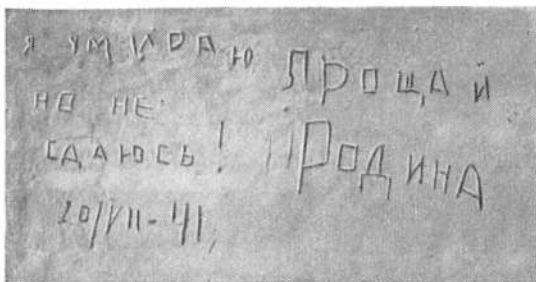 Я УМИРАЮ
НО НЕ
СДАЮСЬ!
20/VII-41,
ПРОЩАЙ
РОДИНА